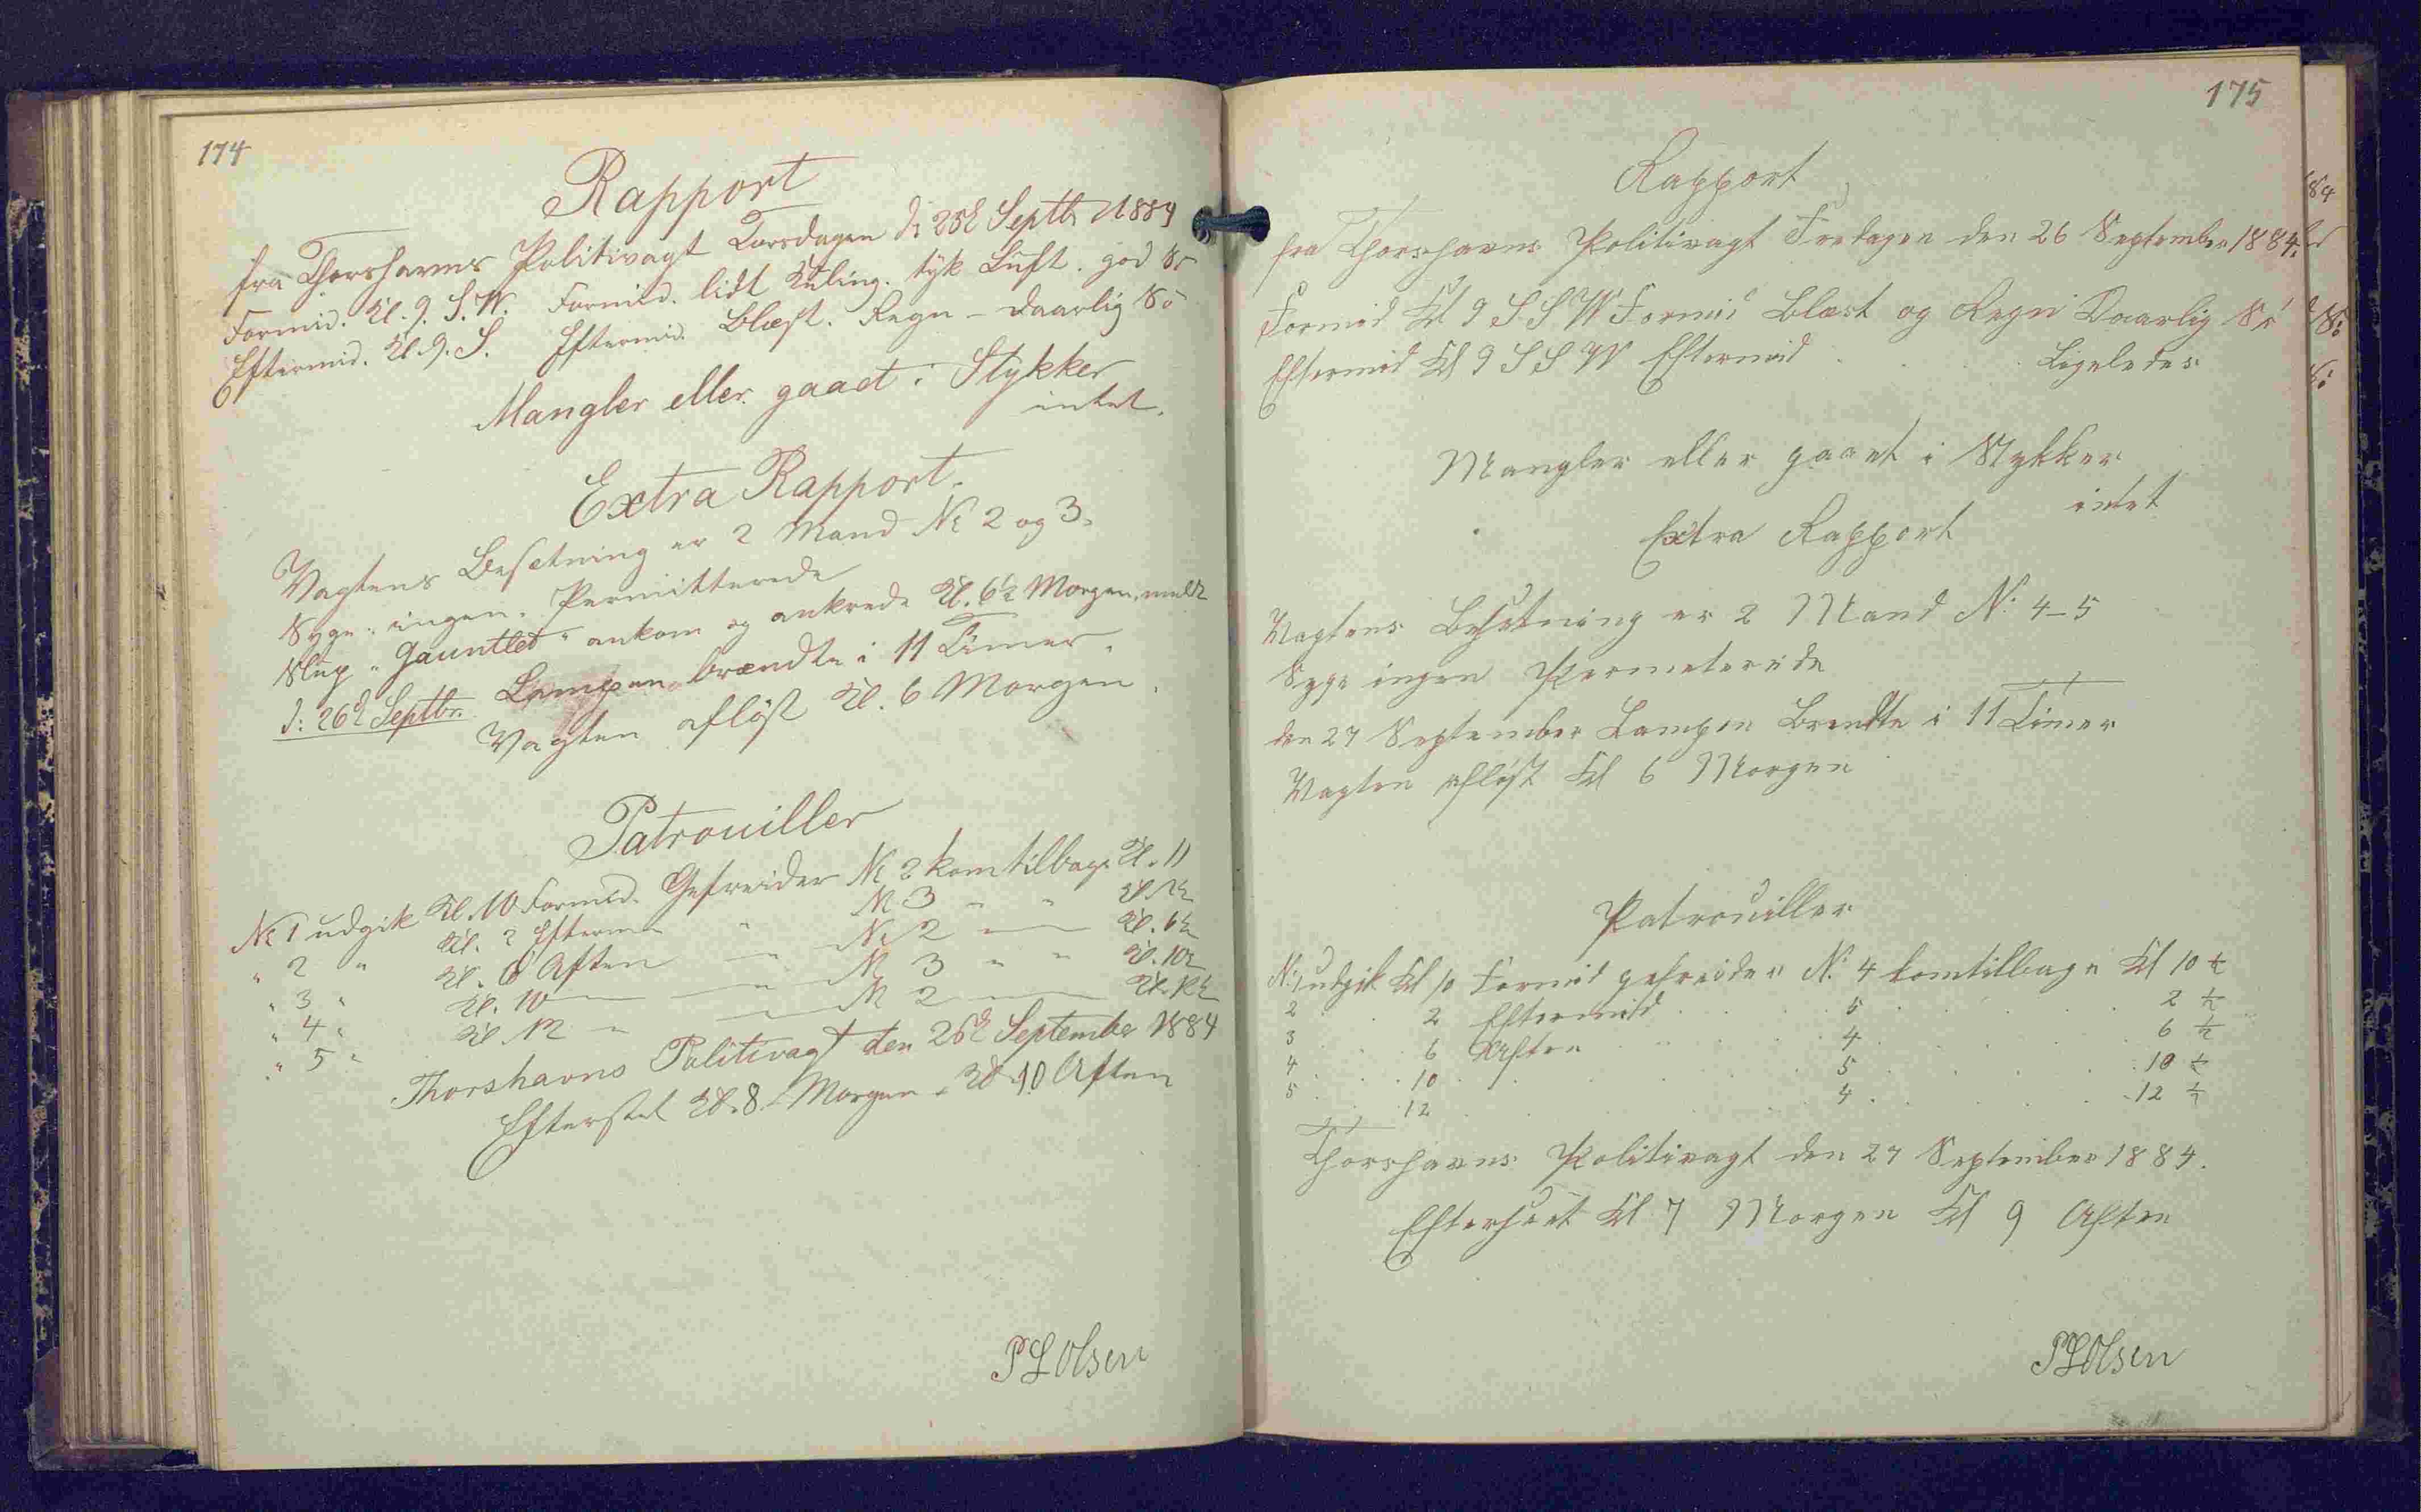 174
Rapport
fra Thorshavns Politivagt Torsdagen d: 25d Septbr 1884
Formid. Kl. 9. S.W. Formid. lidt Kuling. tyk Luft. god Sö
Eftermid. Kl. 9. S. Eftermid. Blæst. Regn - daarlig Sö
Mangler eller gaaet i Stykker
intet.
Extra Rapport.
Vagtens Besetning er 2 Mand No 2 og 3.
Syge: ingen. Permitterede
Slup "Gauntlet" ankom og ankrede Kl. 6½ Morgen.
d: 26d Septbr. Lampen brændte i 11 Timer.
Vagten aflöst Kl. 6 Morgen.
Patrouiller
No 1 udgik Kl. 10 Formid. Gefreider No 2 kom tilbage Kl. 11
" 2 " Kl. 2 Efterm " No 3 " " Kl. 2½
" 3 " Kl. 6 Aften " No 2 " Kl. 6½
" 4 " Kl. 10 " No 3 " " Kl. 10½
" 5 " Kl. 12 " " No 2 " Kl. 12½
Thorshavns Politivagt den 26d September 1884
Efterset Kl. 8 Morgen. Kl. 10 Aften
P L Olsen
175
Rapport
fra Thorshavns Politivagt Fredagen den 26 September 1884.
Formid Kl 9 S S W Formid Blæst og Regn Daarlig Sö
Eftermid Kl 9 S S W Eftermid . . . Ligeledes
Mangler eller gaaet i Stykker
intet
Extra Rapport
Vagtens Besetning er 2 Mand No: 4-5
Syge ingen Permeterede
den 27 September Lampen Brendte i 11 Timer
Vagten aflöst Kl 6 Morgen
Patrouiller
No: 1 udgik Kl 10 Formid gefreider No: 4 komtilbage Kl 10 ½
2 . . 2 Eftermid . . 5 . . . . 2 ½
3 . . 6 Aften . . . 4 . . . . 6 ½
4 . . 10 . . . . 5 . . . . 10 ½
5 . . 12 . . . . 4 . . . . 12 ½
Thorshavns Politivagt den 27 September 1884.
Efterseet Kl 7 Morgen Kl 9 Aften
P L Olsen